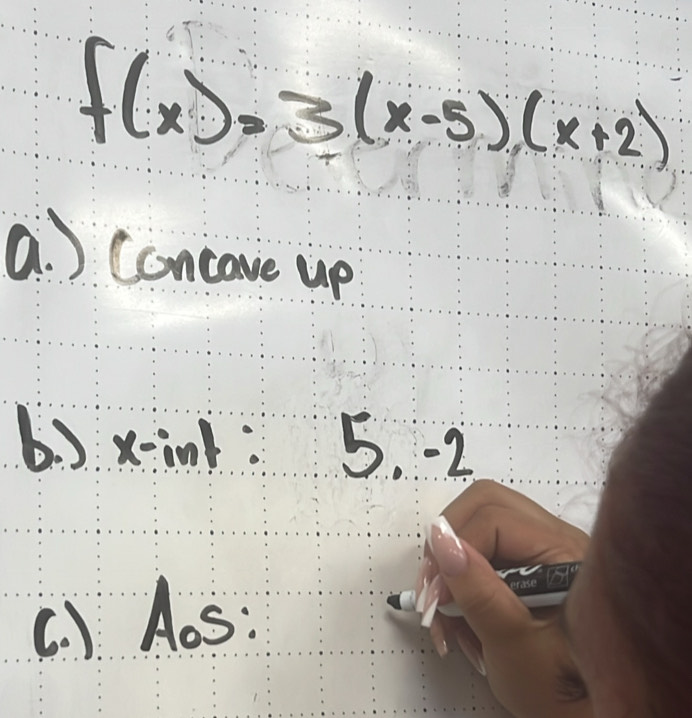 f(x) = 3(x-5)(x+2)
a.) Concave up
b.) x-int: 5, -2
c.) AoS:
erase